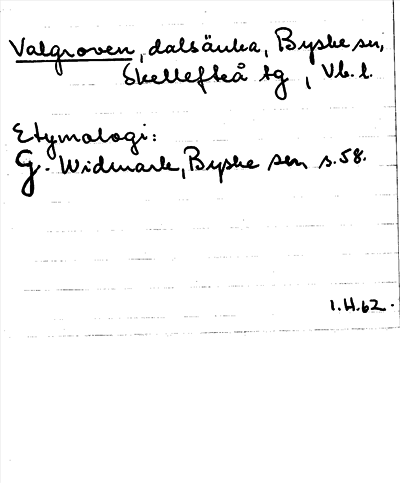 Valgroven, dalsänka, Byske sn,
Skellefteå tg, Vb. l.
Etymologi:
G. Widmark, Byske sn s. 58.
1.H.62.